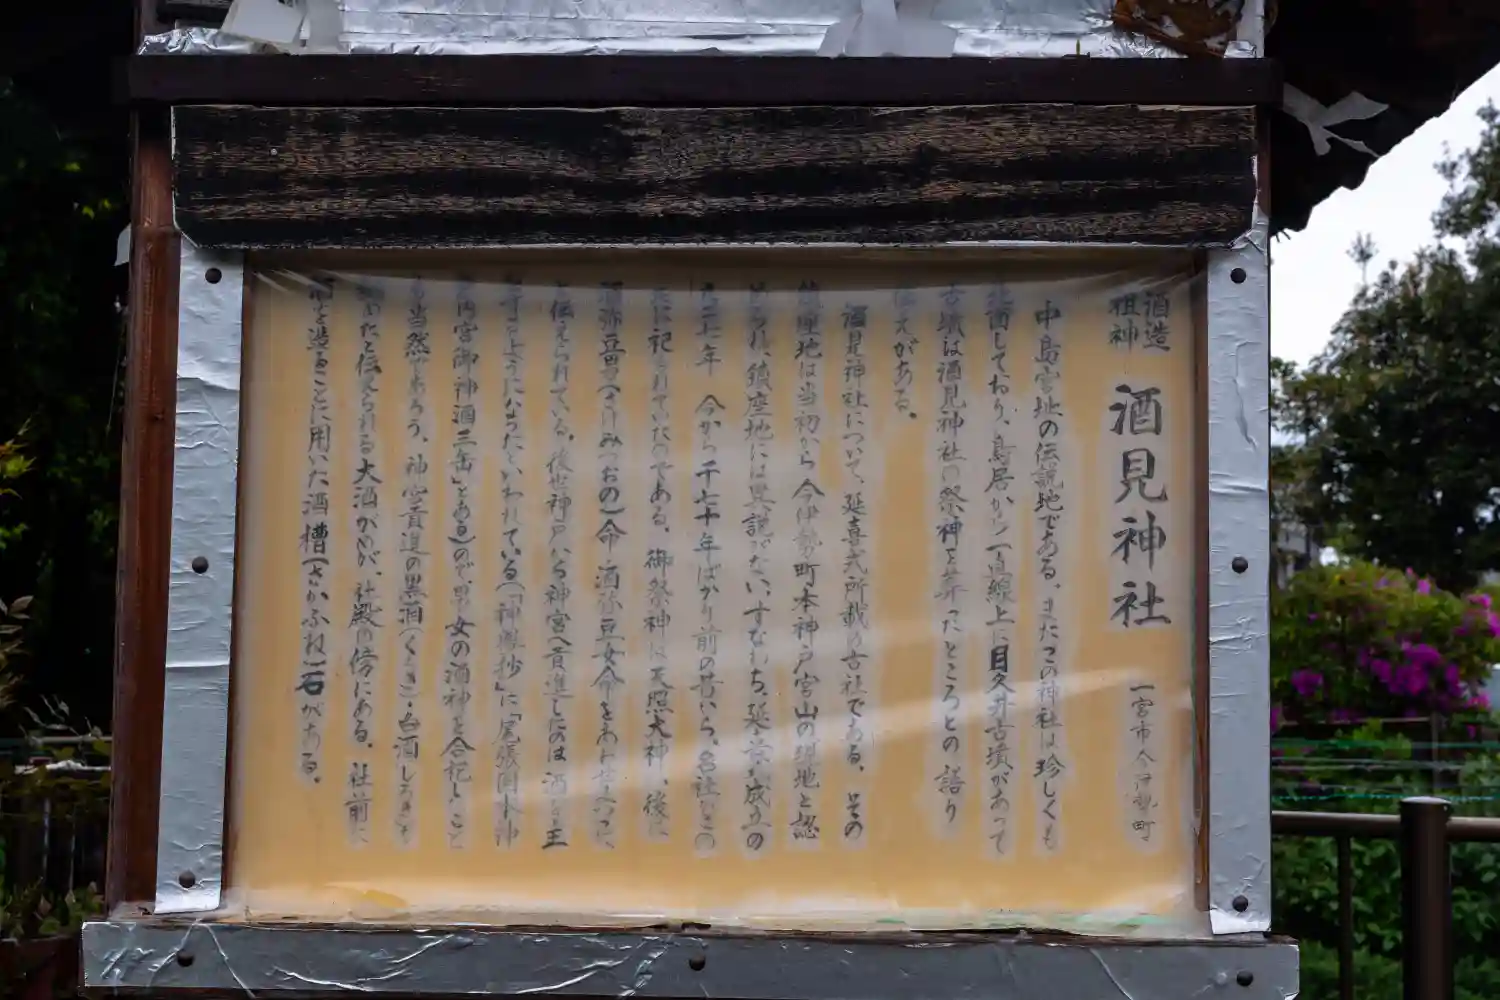 酒造
祖神
酒見神社
一宮市今伊勢町
中島宮址の伝説地である。またこの神社は珍しくも
北面しており、鳥居から一直線上に目久井古墳があって
古墳は酒見神社の祭神を葬ったところとの語り
伝えがある。
酒見神社について、延喜式所載の古社である、その
鎮座地は当初から今伊勢町本神戸宮山の現地と認
められ、鎮座地には異説がない、すなわち、延喜式成立の
九二七年 今から千七十年ばかり前の昔から、当社はこの
地に祀られていたのである。御祭神は天照大神、後に
酒弥豆男(さけみづおの)命・酒弥豆女命をあわせ
と伝えられている。後世神戸から神宮へ貢進したのは酒を主
とするようになったといわれている(「神鳳抄」に「尾張国本神
戸内宮御神酒三缶」とある)ので男女の酒神を合祀したこと
も当然であろう、神宮貢進の黒酒(くろき)・白酒しろきを
と伝えられる大酒がめが、社殿の傍にある、社前に
酒を造ることに用いた酒槽(さかふね)石がある。